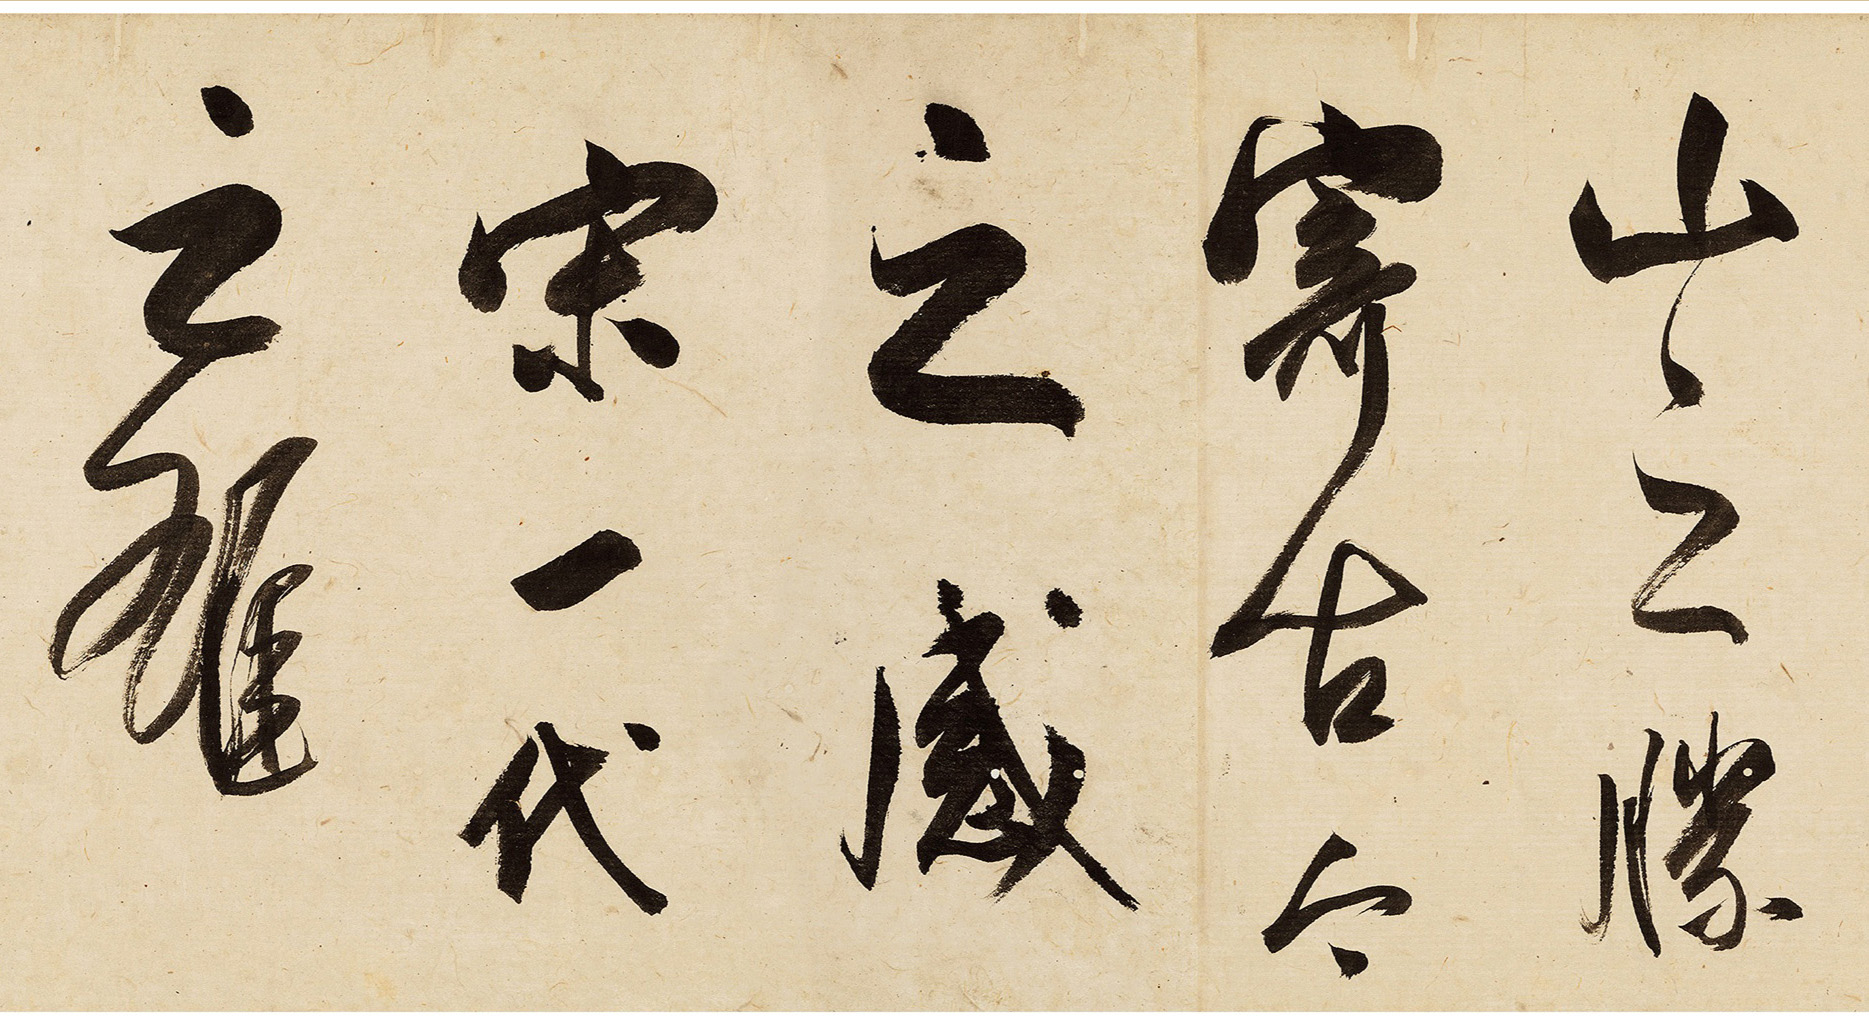 山之勝
寄古今
之感
宋一代
之雄